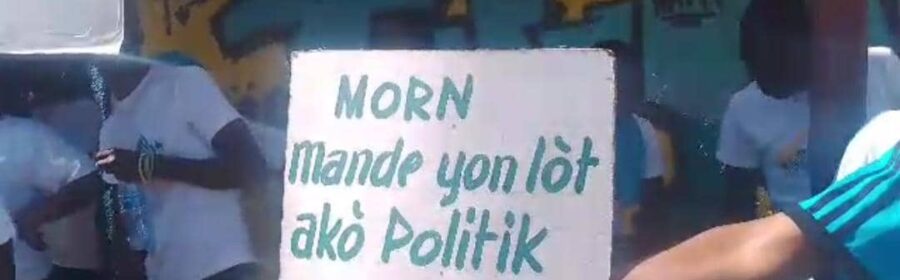 MORN
mande yon lòt
akò Politik